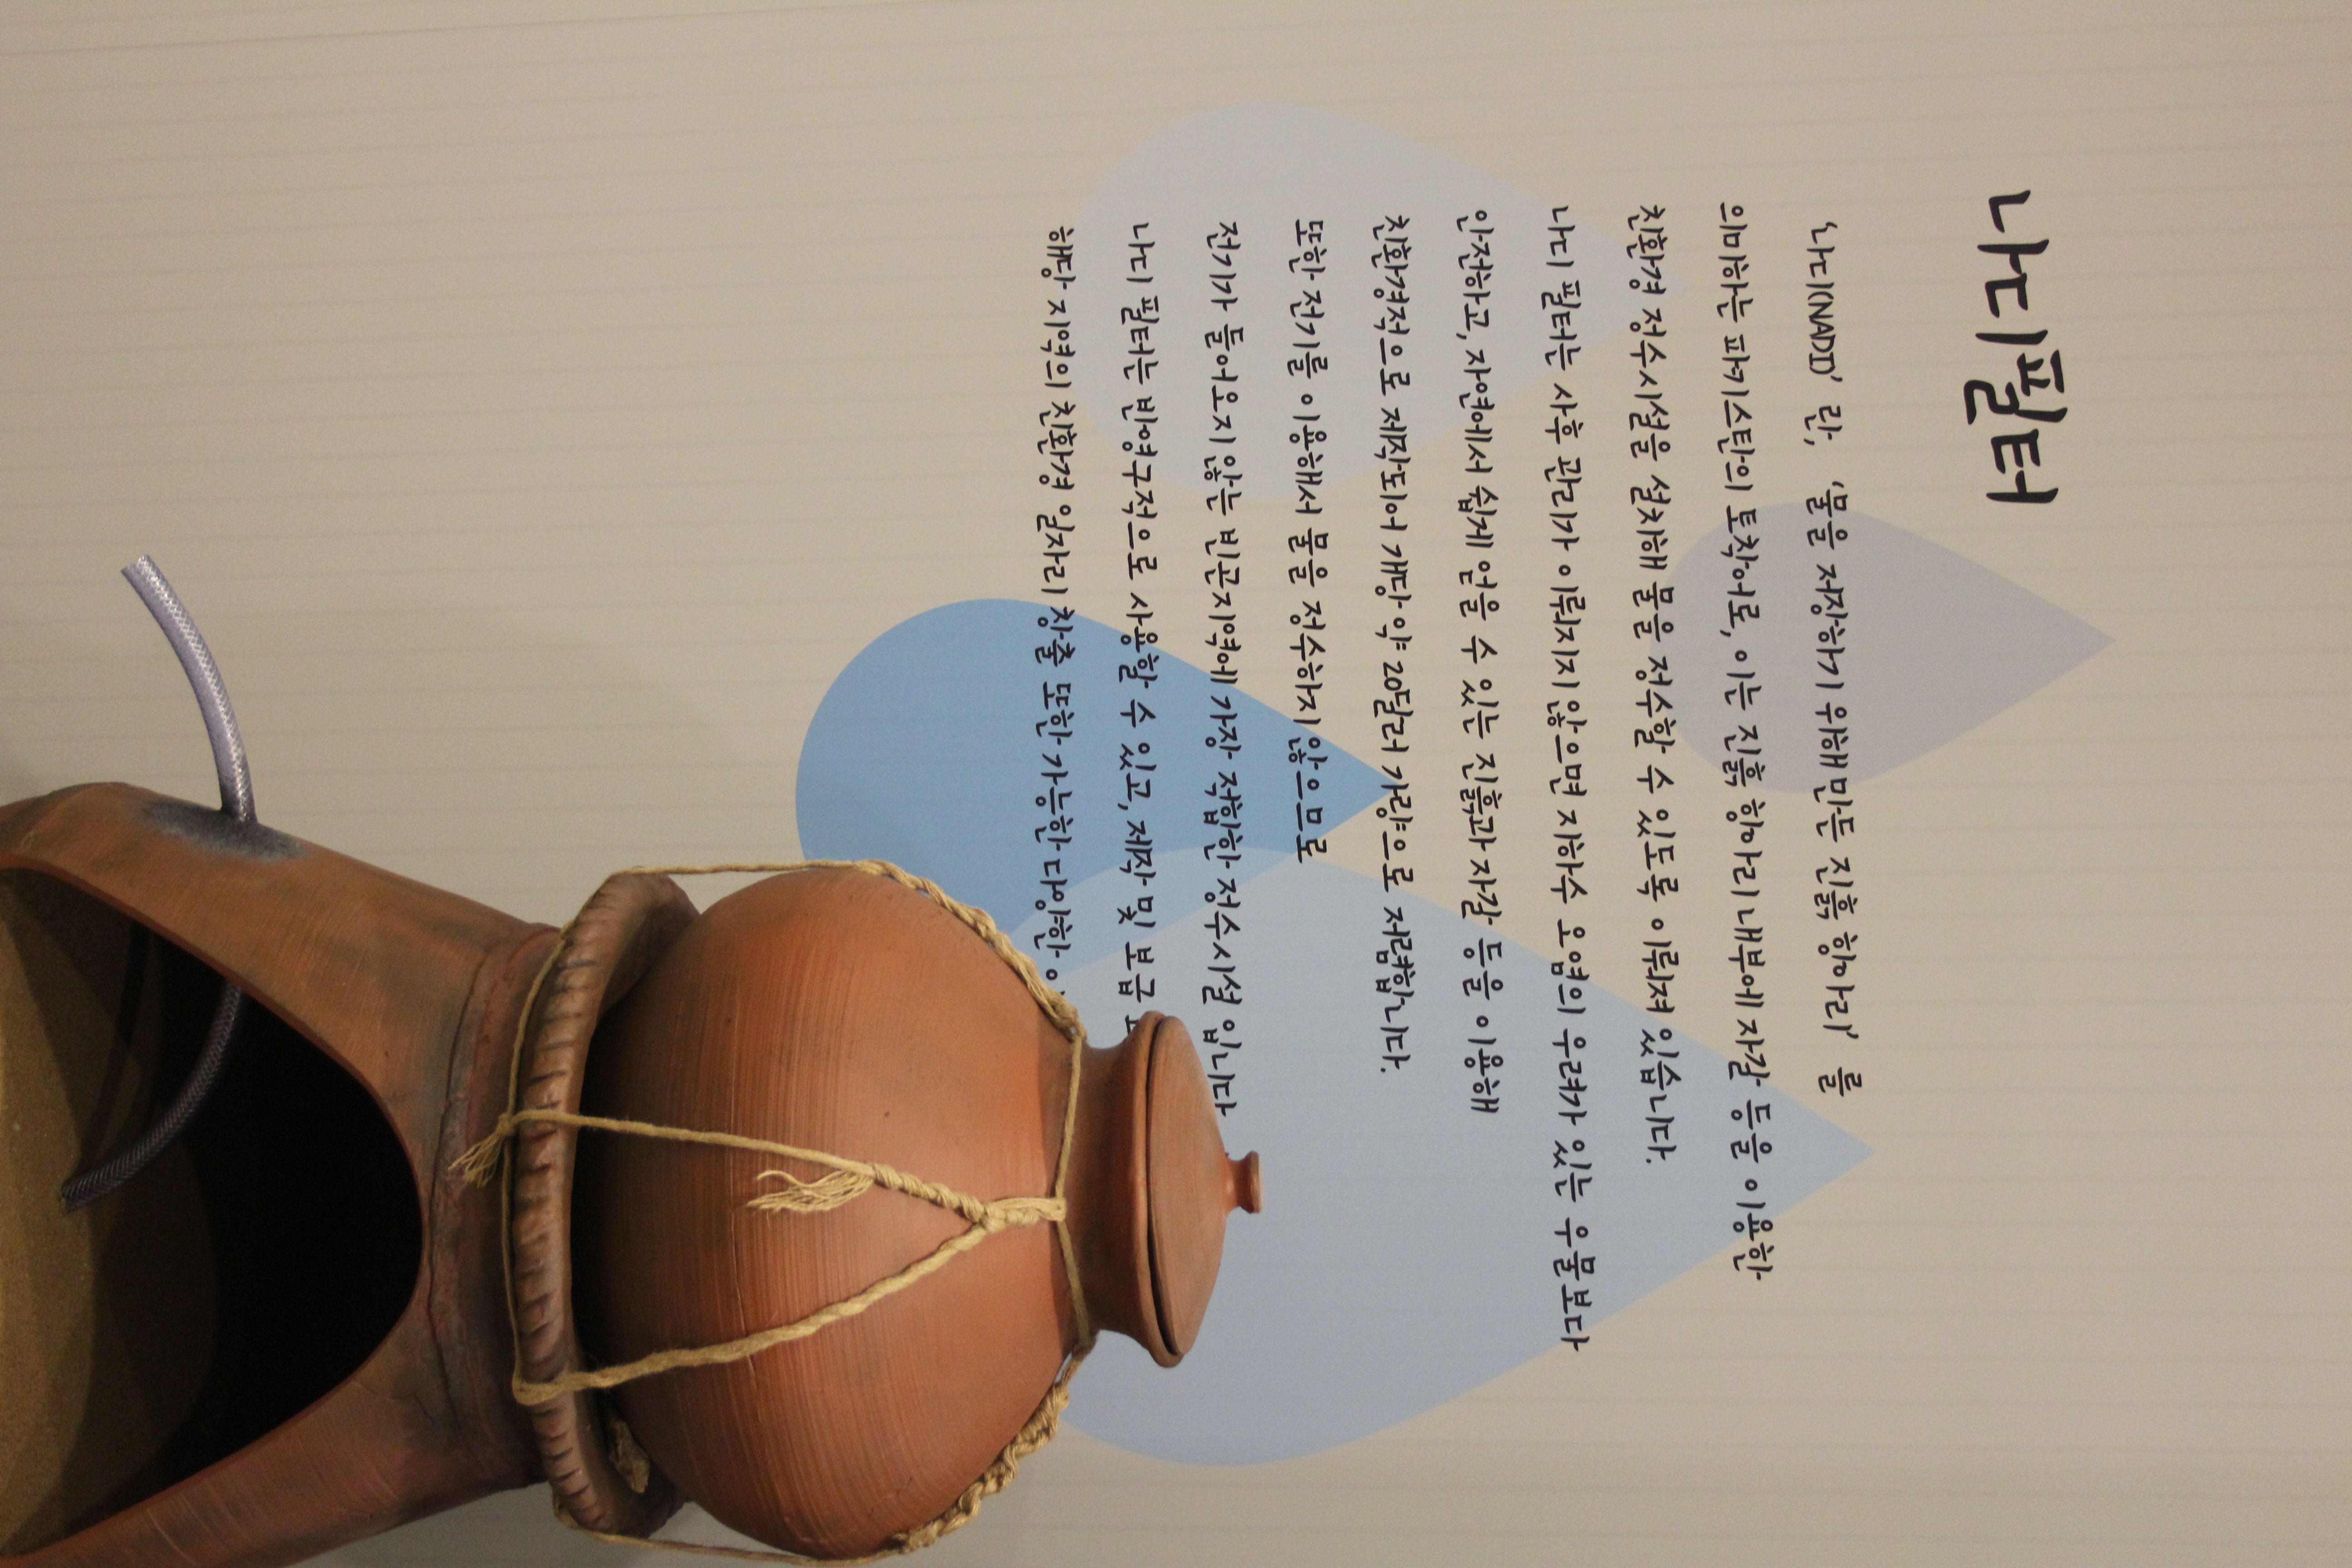 나디필터
'나디(NADI)' 란, '물을 저장하기 위해 만든 진흙 항아리' 를
의미하는 파키스탄의 토착어로, 이는 진흙 항아리 내부에 자갈 등을 이용한
친환경 정수시설을 설치해 물을 정수할 수 있도록 이뤄져 있습니다.
나디 필터는 사후 관리가 이뤄지지 않으면 지하수 오염의 우려가 있는 우물보다
안전하고, 자연에서 쉽게 얻을 수 있는 진흙과 자갈 등을 이용해
친환경적으로 제작되어 개당 약 20달러 가량으로 저렴합니다.
또한 전기를 이용해서 물을 정수하지 않으므로
전기가 들어오지 않는 빈곤지역에 가장 적합한 정수시설 입니다
나디 필터는 반영구적으로 사용할 수 있고, 제작 및 보급
해당 지역의 친환경 일자리 창출 또한 가능한 다양한